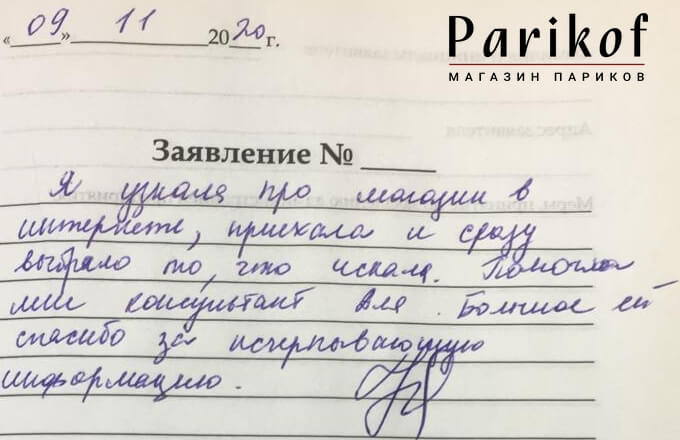 Parikof
МАГАЗИН ПАРИКОВ
«09» 11 2020 г.
Заявление №
Я узнала про магазин в
интернете, приехала и сразу
выбрала то, что искала. Помогла
мне консультант Оля. Большое ей
спасибо за исчерпывающую
информацию.